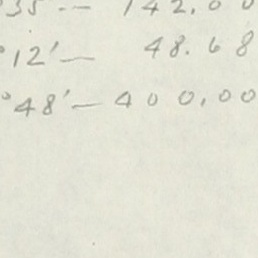 35 -- 142.00
°12'— 48.68
°48'— 400.00